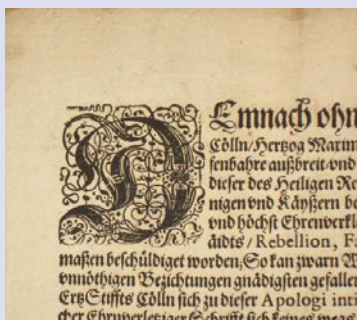 DEmnach ohn
Cölln/Hertzog Maxim
fenbahre außbreit-vnd
dieser des Heiligen Re
nigen vnd Käyßern be
vnd höchst Ehrenverkl
äidts/Rebellion, F
massen beschüldiget worden; So kan zwarn W
vnnöthigen Bezichtungen gnädigsten gefallen
ErtzStiffts Cölln sich zu dieser Apologi inti
cher Ehrnverletziger Schrifft sich keines wegs